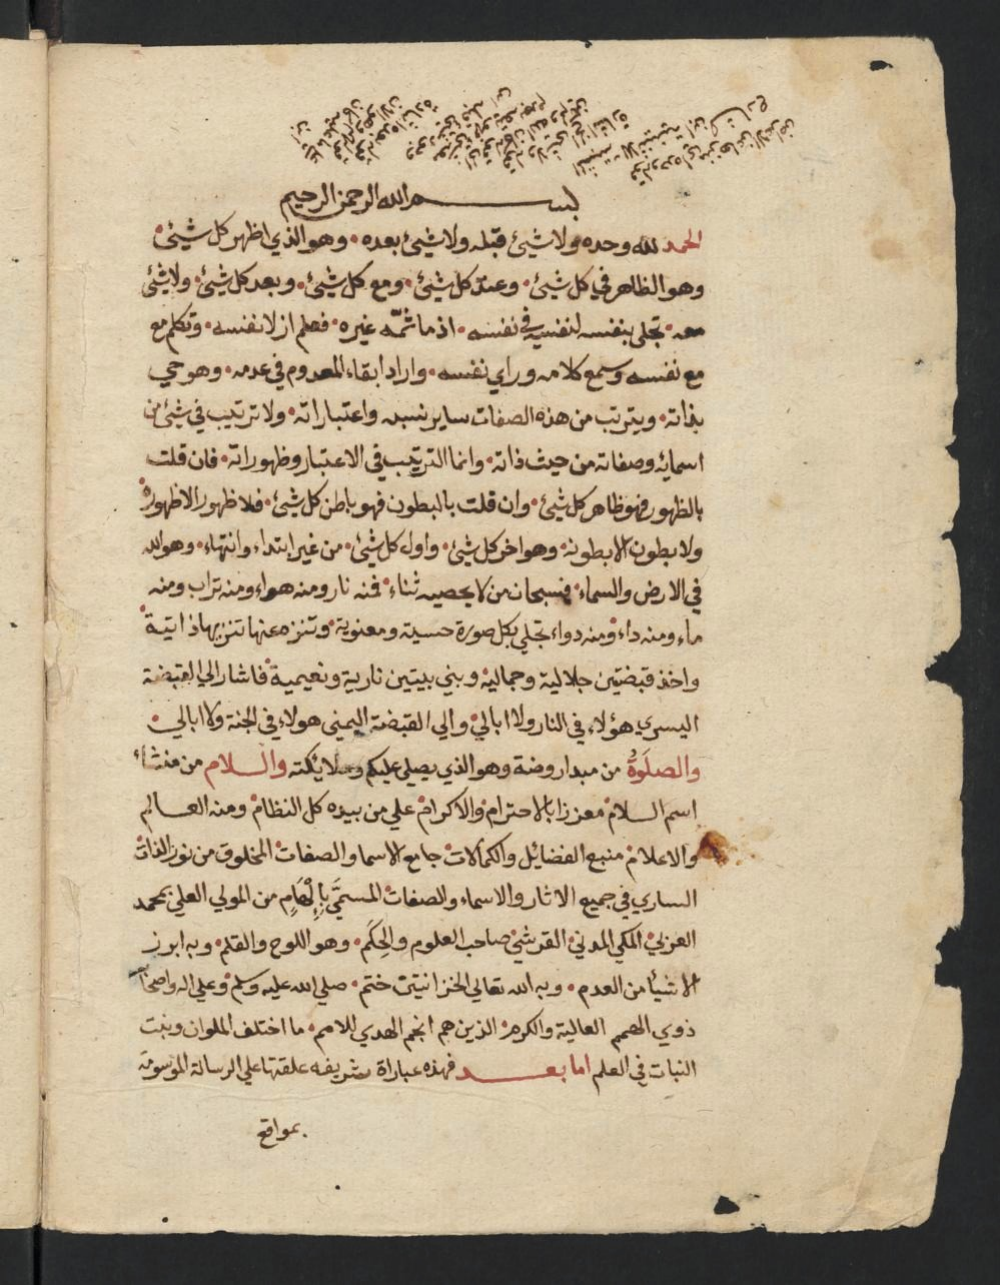 بسم الله الرحمن الرحيم
الحمد لله وحده ولا شيئ قبله ولا شيئ بعده وهو الذي اظهر كل شيئ
وهو الظاهر في كل شيئ وعند كل شيئ ومع كل شيئ وبعد كل شيئ ولا شيئ
معه تجلي بنفسه لنفسه في نفسه اذ ما ثمه غيره فعلم ازلا نفسه وتكلم مع
مع نفسه وسمع كلامه وراي نفسه واراد ابقاء المعدوم في عدمه وهو حي
بذاته ويترتب من هذه الصفات ساير نسبه واعتباراته ولا ترتيب في شيئ من
اسمائه وصفاته من حيث ذاته وانما الترتيب في الاعتبار وظهوراته فان قلت
بالظهور فهو ظاهر كل شيئ وان قلت بالبطون فهو باطن كل شيئ فلا ظهور الا ظهوره
ولا بطون الا بطونه وهو اخر كل شيئ واول كل شيئ من غير ابتداء وانتهاء وهو الله
في الارض والسماء فسبحان من لا يحصيه ثناء فمنه نار ومنه هواء ومنه تراب ومنه
ماء ومنه داء ومنه دواء تجلي بكل صورة حسية ومعنوية وتنزه عنها تنزيها ذاتية
واخذ قبضتين جلالية وجمالية وبني بيتين نارية ونعيمية فاشار الي القبضة
اليسري هؤلاء في النار ولا ابالي والي القبضة اليمني هولاء في الجنة ولا ابالي
والصلوة من مبدا روضة وهو الذي يصلي عليكم وملائكته والسلام من منشأ
اسم السلام معززا بالاحترام والاكرام علي من بيده كل النظام ومنه العالم
والاعلام منبع الفضايل والكمالات جامع الاسما والصفات المخلوق من نور الذات
الساري في جميع الاثار والاسماء والصفات المسمَّي بِإِلْهَامٍ من المولي العلي بمحمد
العربي المكي المدني القرشي صاحب العلوم والحِكَم وهو اللوح والقلم وبه ابرز
الاشيأ من العدم وبه الله تعالي الخزانتين ختم صلي الله عليه وسلم وعلي اله واصحابه
ذوي الهمم العالية والكرم الذين هم انجم الهدي للامم ما اختلف الملوان ونبت
النبات في العلم اما بعد فهذه عباراة شريفه علقتها علي الرسالة الموسومة
بمواقع